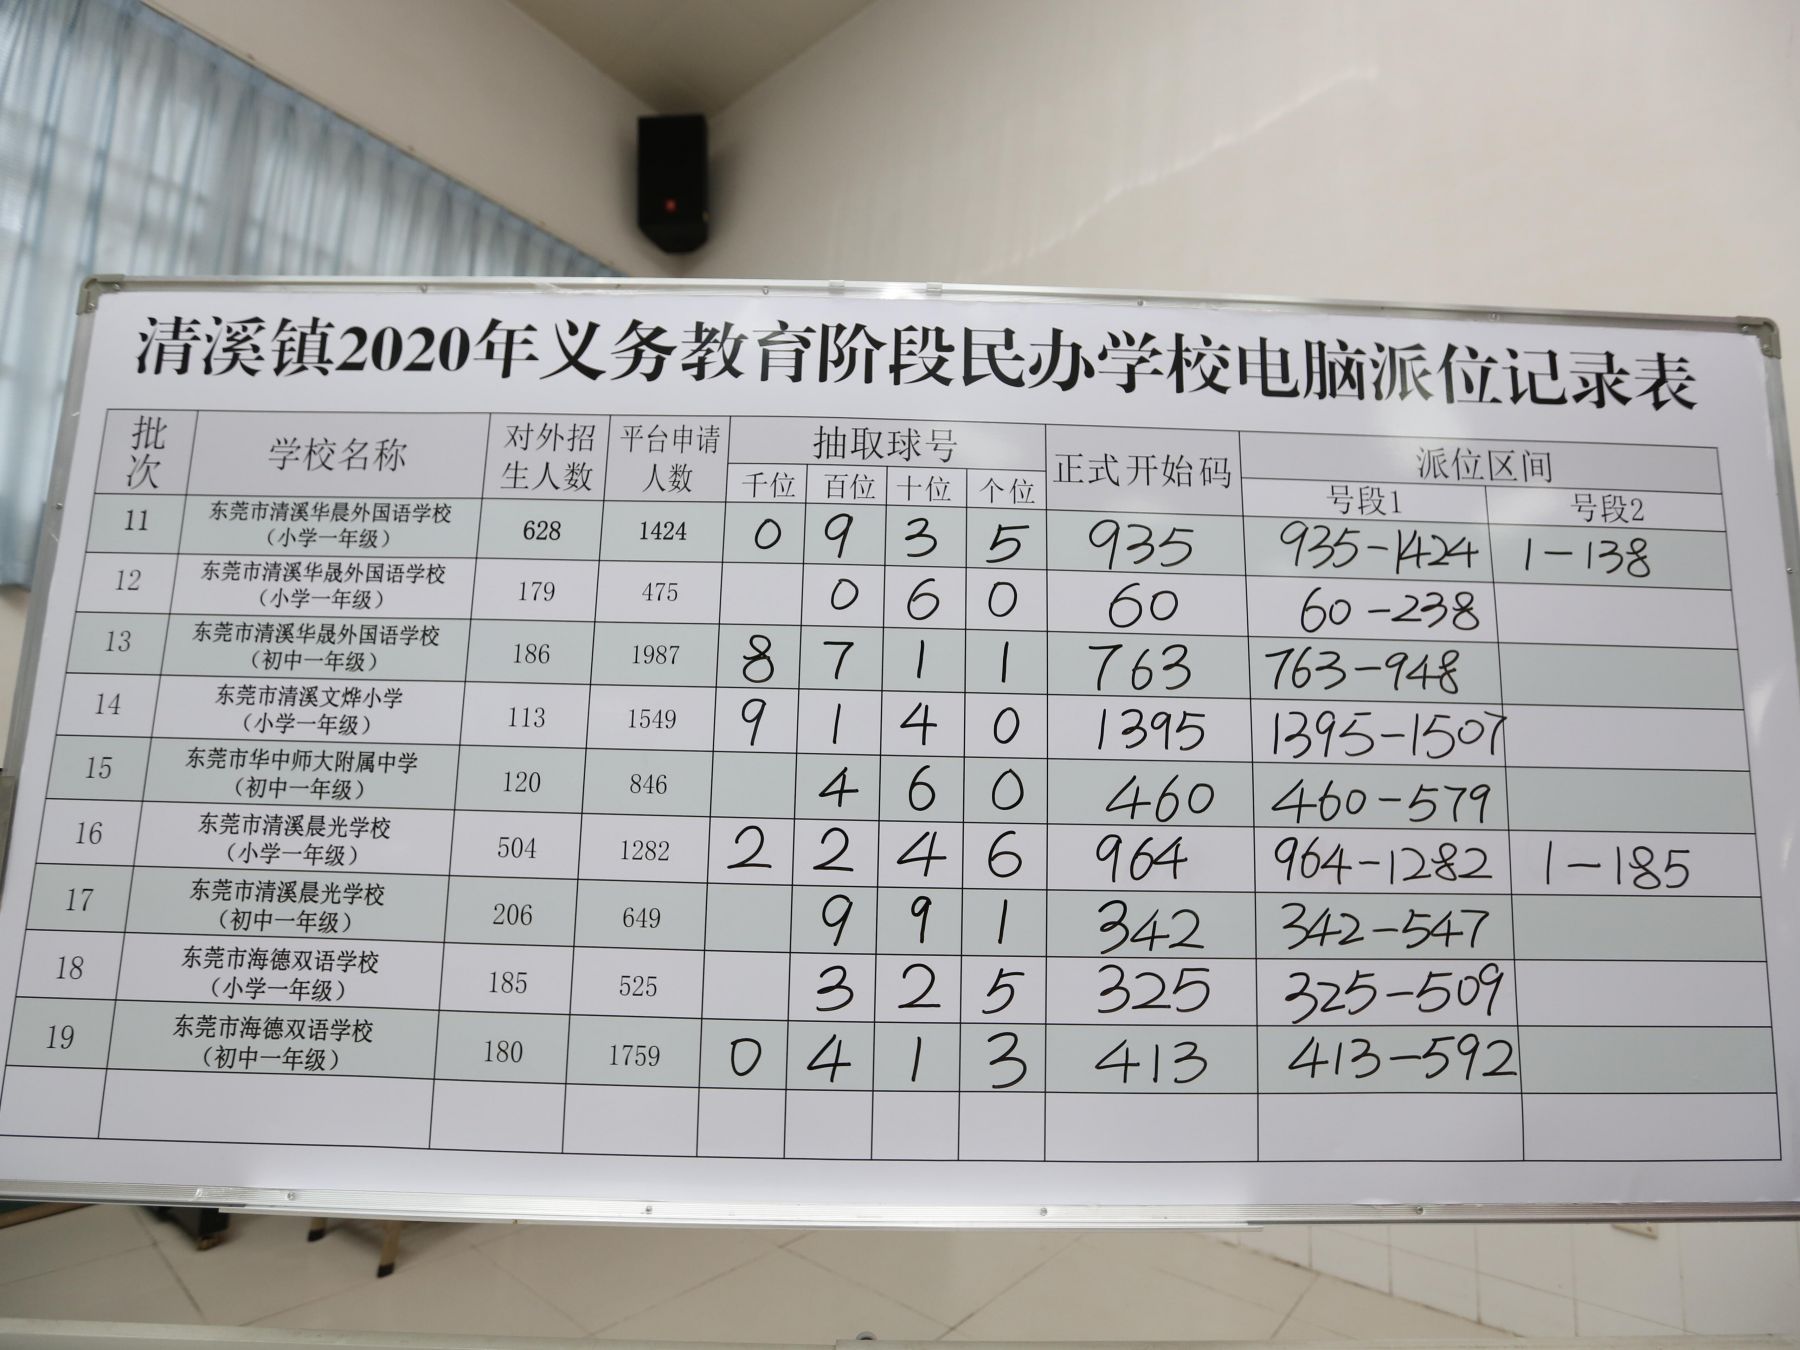 清溪镇2020年义务教育阶段民办学校电脑派位记录表
批次 学校名称 对外招生人数 平台申请人数 抽取球号 正式开始码 派位区间
千位 百位 十位 个位 号段1 号段2
11 东莞市清溪华晨外国语学校（小学一年级） 628 1424 0 9 3 5 935 935-1424 1-138
12 东莞市清溪华晟外国语学校（小学一年级） 179 475 0 6 0 60 60-238
13 东莞市清溪华晟外国语学校（初中一年级） 186 1987 8 7 1 1 763 763-948
14 东莞市清溪文烨小学（小学一年级） 113 1549 9 1 4 0 1395 1395-1507
15 东莞市华中师大附属中学（初中一年级） 120 846 4 6 0 460 460-579
16 东莞市清溪晨光学校（小学一年级） 504 1282 2 2 4 6 964 964-1282 1-185
17 东莞市清溪晨光学校（初中一年级） 206 649 9 9 1 342 342-547
18 东莞市海德双语学校（小学一年级） 185 525 3 2 5 325 325-509
19 东莞市海德双语学校（初中一年级） 180 1759 0 4 1 3 413 413-592